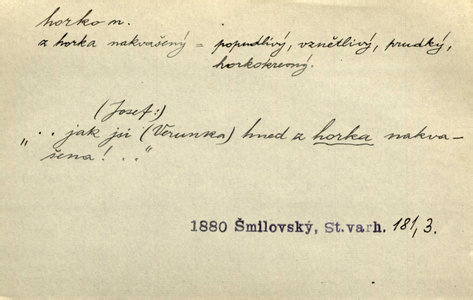 horko n.
z horka nakvašený = popudlivý, vznětlivý, prudký,
horkokrevný.
(Josef:)
„.. jak jsi (Verunka) hned z horka nakva-
šena! .."
1880 Šmilovský, St. varh. 181, 3.